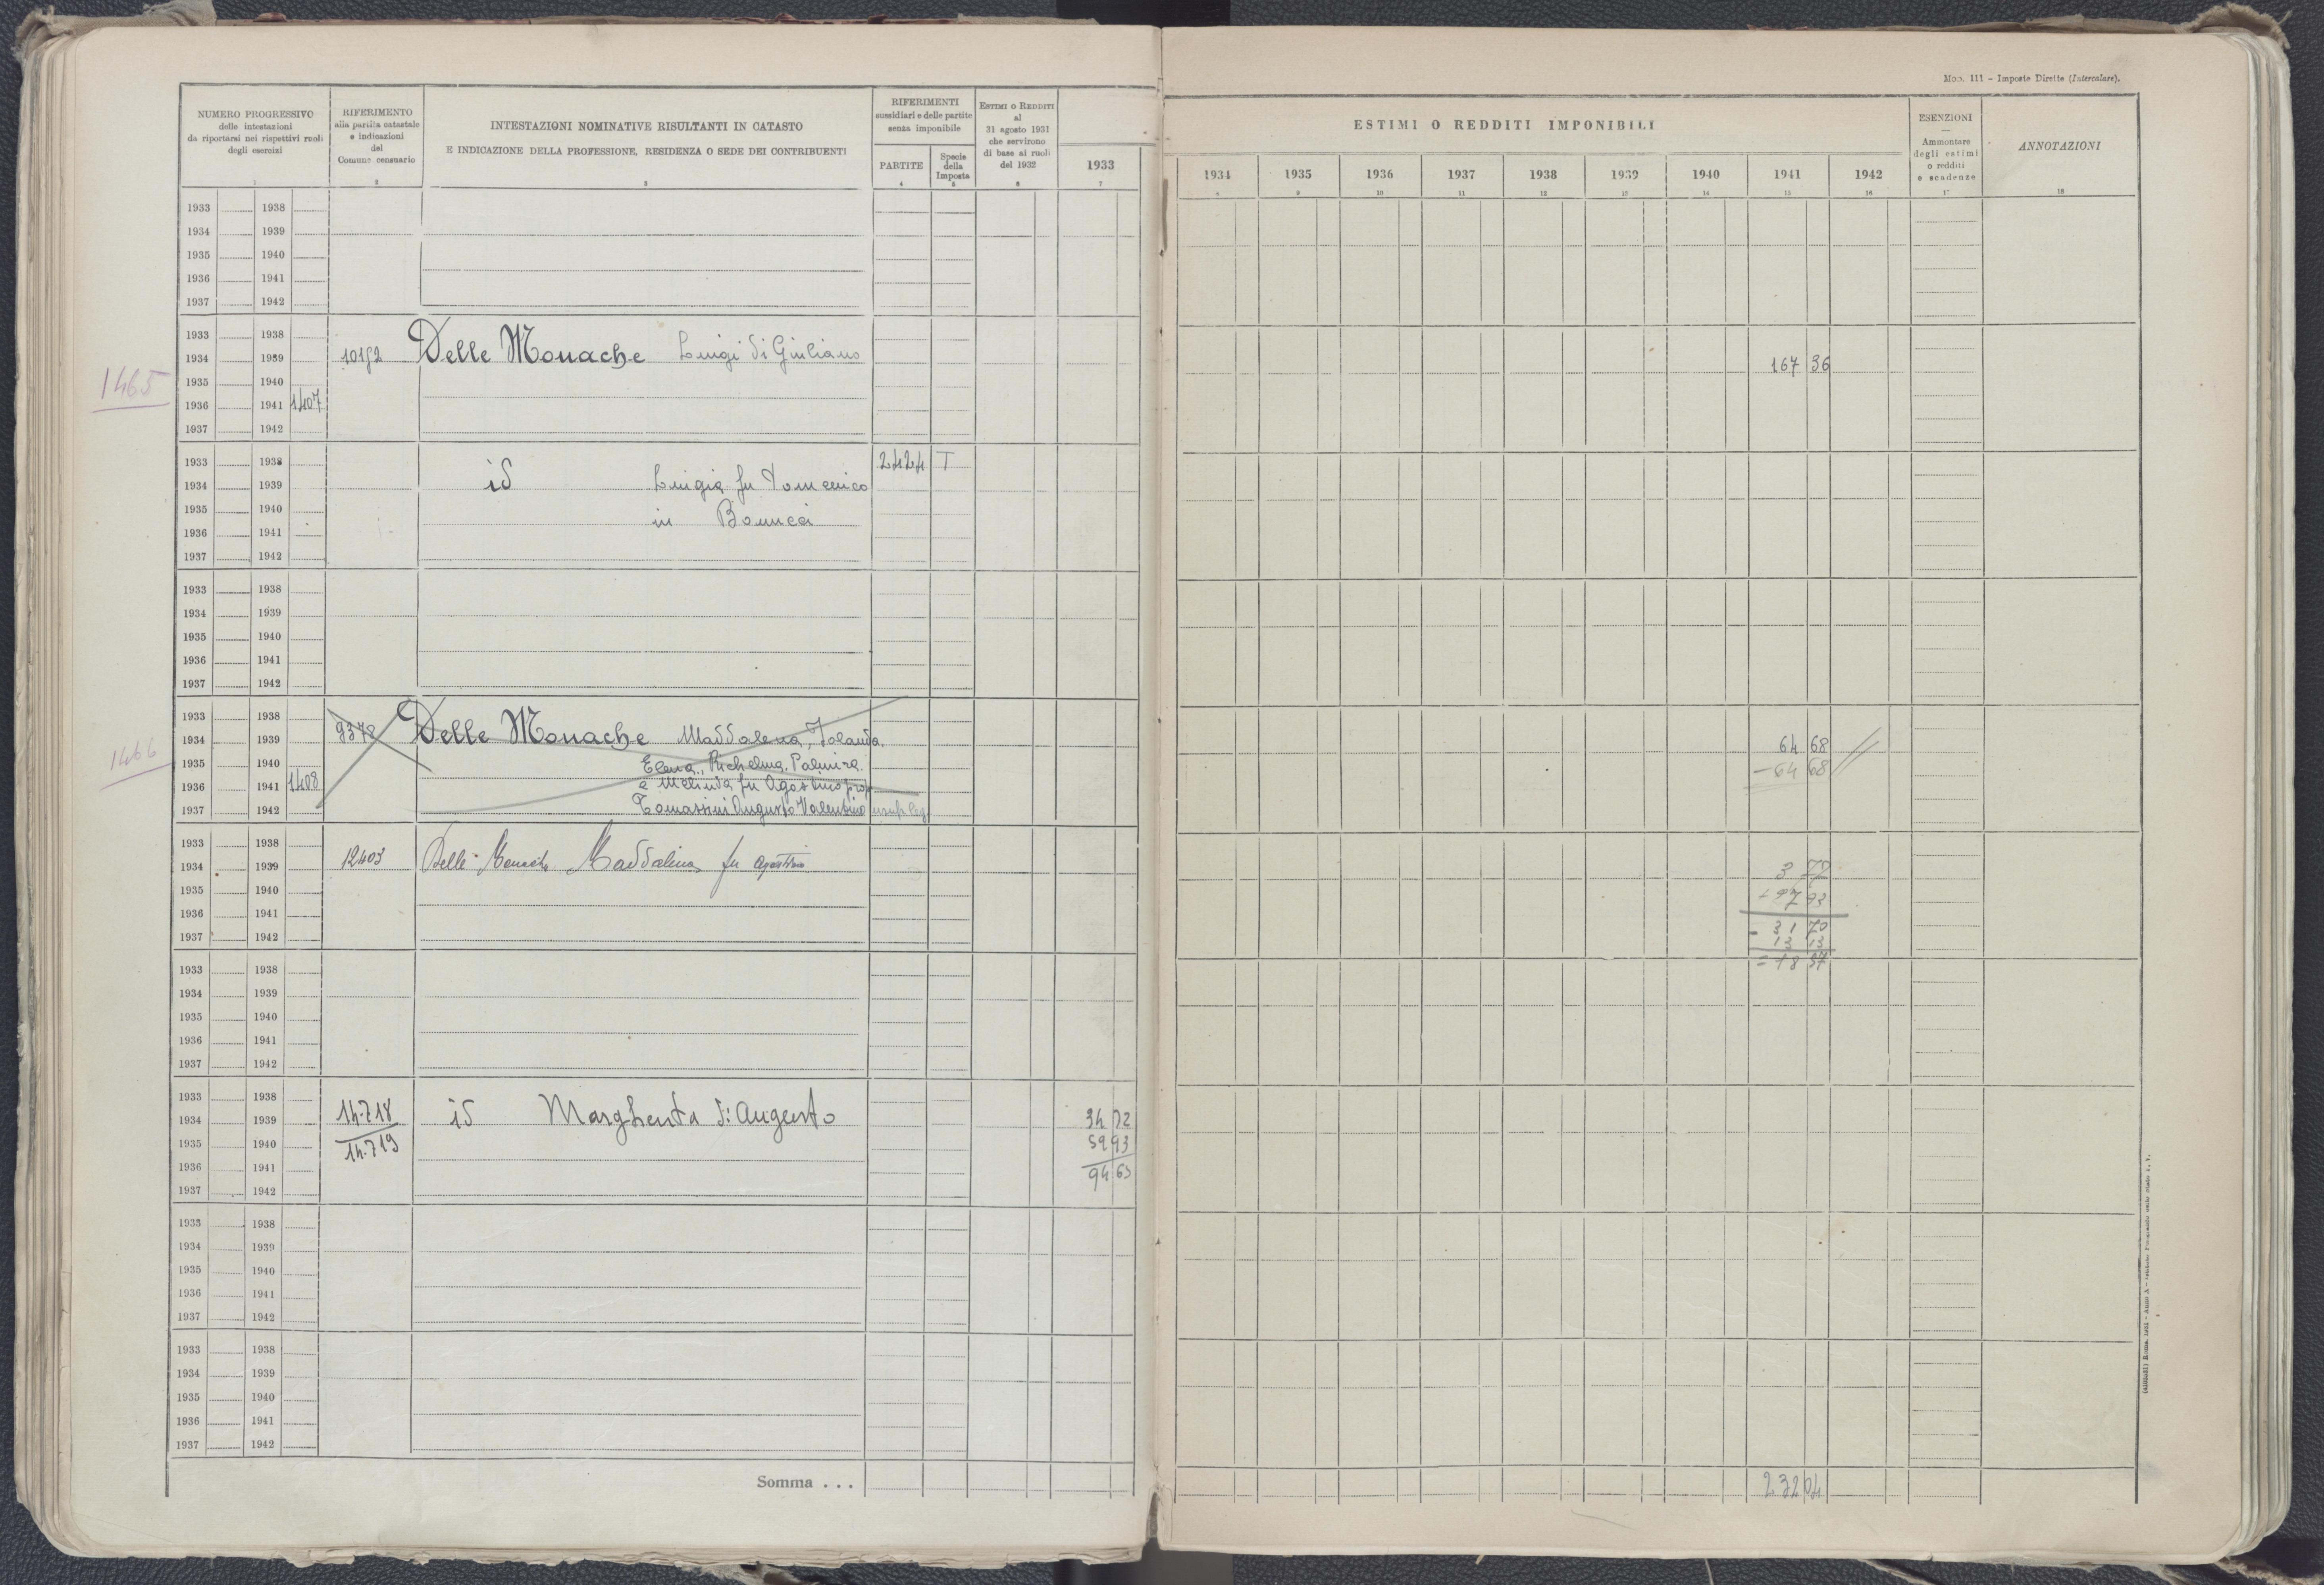 Mod. 111 - Imposte Dirette (Intercalare).
NUMERO PROGRESSIVO
delle intestazioni
da riportarsi nei rispettivi ruoli
degli esercizi
1
RIFERIMENTO
alla partita catastale
e indicazioni
del
Comune censuario
2
INTESTAZIONI NOMINATIVE RISULTANTI IN CATASTO
E INDICAZIONE DELLA PROFESSIONE, RESIDENZA O SEDE DEI CONTRIBUENTI
3
RIFERIMENTI
sussidiari e delle partite
senza imponibile
PARTITE
4
Specie
della
Imposta
5
ESTIMI O REDDITI
al
31 agosto 1931
che servirono
di base ai ruoli
del 1932
6
1933
7
ESTIMI O REDDITI IMPONIBILI
1934 1935 1936 1937 1938 1939 1940 1941 1942
9 10 11 12 13 14 15 16
ESENZIONI
Ammontare
degli estimi
o redditi
e scadenze
17
ANNOTAZIONI
18
1933 1938
1934 1939
1935 1940
1936 1941
1937 1942
1933 1938
1934 1939 Delle Monache Luigi di Giuliano 167 36
1465
1935 1940
1936 1941 1407
1937 1942
1933 1938 2424 T
1934 1939 id Luigia fu Domenico
1935 1940 in Bonucci
1936 1941
1937 1942
1933 1938
1934 1939
1935 1940
1936 1941
1937 1942
1933 1938
1934 1939 9378 Delle Monache Maddalena, Jolanda, 64 68
1466
1935 1940 Elena, Richelma, Palmira - 64 68
1936 1941 1408 e Melinda fu Agostino prop
1937 1942 Tomassini Augusto Valentino
1933 1938
1934 1939 12403 Delle Monache Maddalena fu Agostino
1935 1940
1936 1941
1937 1942 - 31 70
13 13
= 18 57
1933 1938
1934 1939
1935 1940
1936 1941
1937 1942
1933 1938
1934 1939 14718 id Margherita di Augusto 34 72
1935 1940 14719 59 93
1936 1941 94 65
1937 1942
1933 1938
1934 1939
1935 1940
1936 1941
1937 1942
1933 1938
1934 1939
1935 1940
1936 1941
1937 1942
Somma . . . 232 04